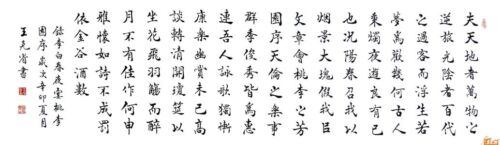 夫天地者萬物之
逆旅光陰者百代
之過客而浮生若
夢爲歡幾何古人
秉燭夜遊良有已
也況陽春召我以
烟景大塊假我以
文章會桃李之芳
園序天倫之樂事
群季俊秀皆爲惠
連吾人詠歌獨慚
康樂幽賞未已高
談轉清開瓊筵以
坐花飛羽觴而醉
月不有佳作何申
雅懷如詩不成罰
依金谷酒數
錄李白春夜宴桃李
園序歲次辛卯夏月
王 書